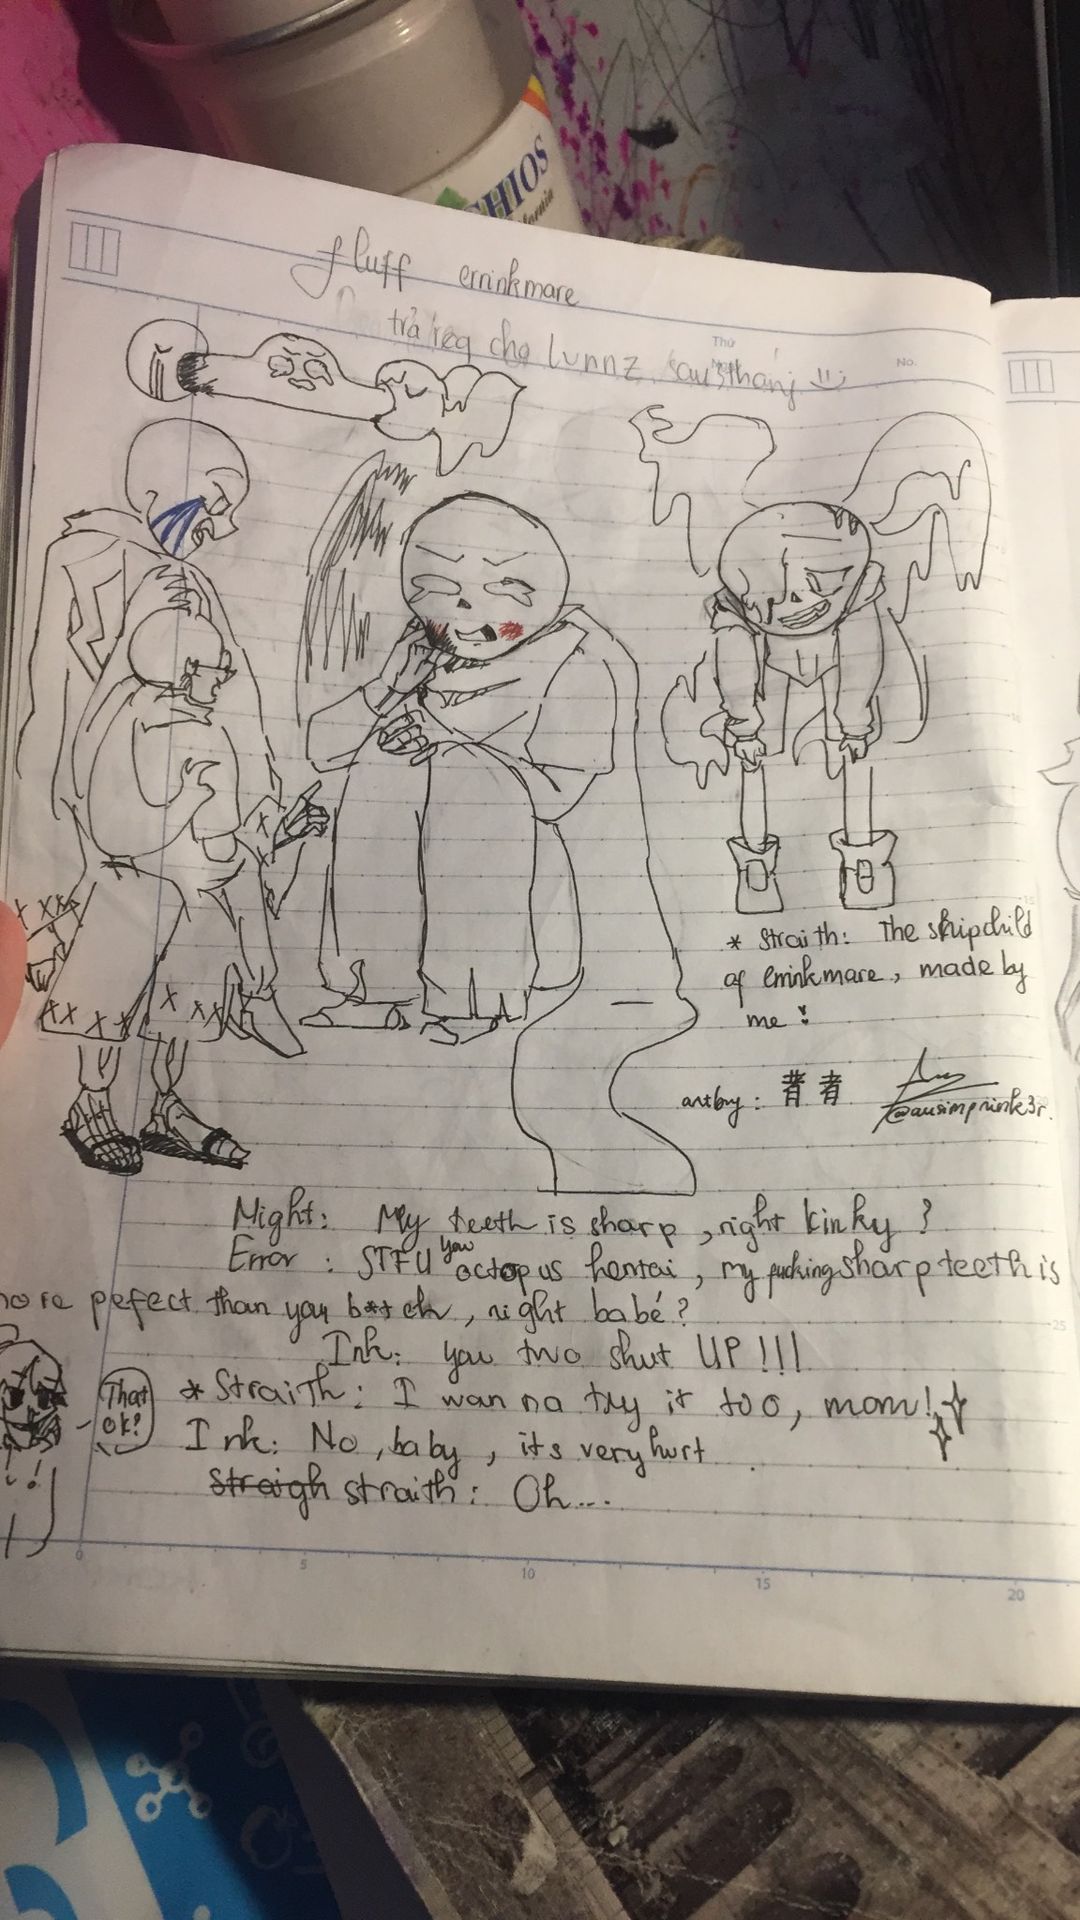 CHIOS
fornia
fluff errinkmare
trả req cho Lunnz sau 3 tháng
Thứ
No.
* Straith: The shipchild
of errinkmare, made by
me
artby: 者 者
@ausimpnink3r.
Might: My teeth is sharp, right kinky?
Error: STFU you octopus hentai, my fucking sharp teeth is
more pefect than you b**tch, right babé?
Ink: you two shut UP!!!
That
ok?
* Straith: I wanna try it too, mom!
Ink: No, baby, its very hurt
Straigh straith: Oh...
0 5 10 15 20
25